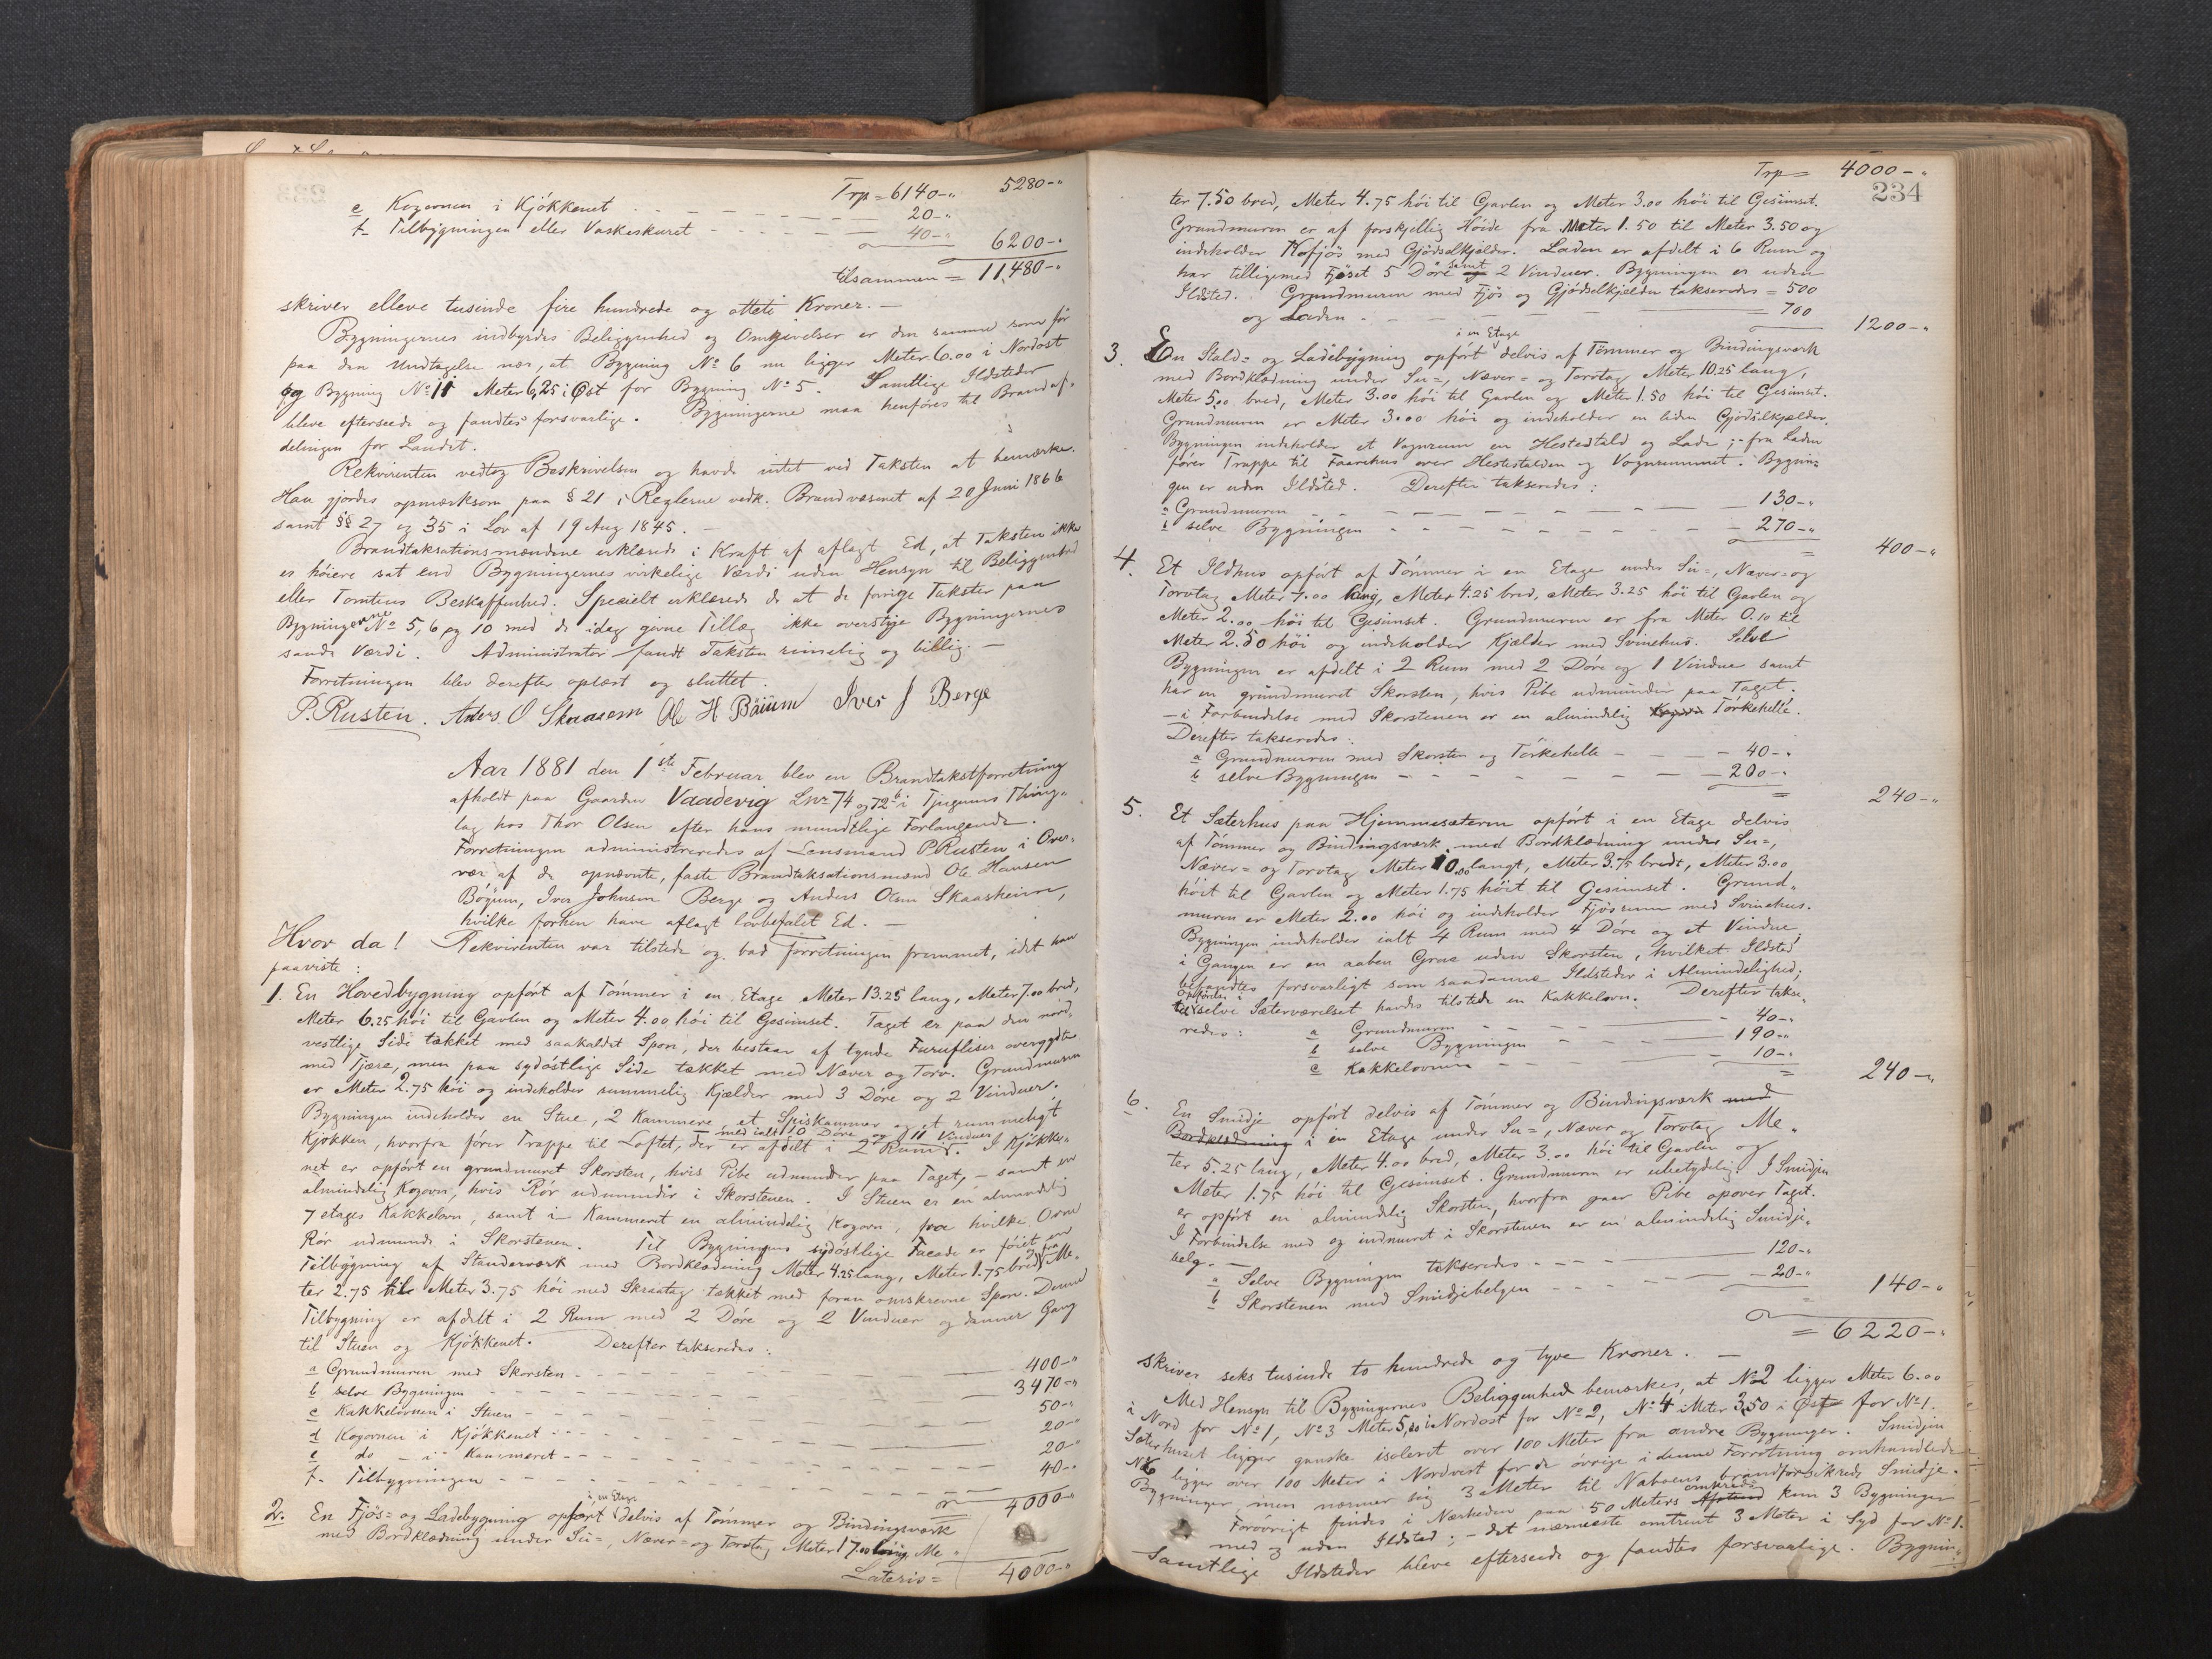 Trp = 6140-" 5280-"
e Kogovnen i Kjökkenet - - - - - - 20-"
f- Tilbygningen eller Vaskeskuret - - - - - 40-" 6200-"
tilsammen = 11,480-"
skriver elleve tusinde fire hundrede og otteti Kroner. -
Bygningernes indbyrdes Beliggenhed og Omgivelser er den samme som för
paa den Undtagelse nær, at Bygning No 6 nu ligger Meter 6.00 i Nordost
og Bygning No 11 Meter 6,25 i Øst for Bygning No 5. Samtlige Ildsteder
bleve efterseede og fandtes forsvarlige. Bygningerne maa henföres til Brandaf-
delingen for Landet.
Rekvirenten vedtog Beskrivelsen og havde intet ved Taksten at bemærke.
Han gjordes opmærksom paa § 21 i Reglerne vedk. Brandvæsenet af 20 Juni 1866
samt §§ 27 og 35 i Lov af 19 Aug 1845. -
Brandtaksationsmændene erklærede i Kraft af aflagt Ed, at Taksten ikke
er höiere sat end Bygningernes virkelige Værdi uden Hensyn til Beliggenhed
eller Tomtens Beskaffenhed. Specielt erklærede de at de forrige Takster paa
Bygningerne No 5, 6 og 10 med de idag givne Tillæg ikke overstige Bygningernes
sande Værdi. Administrator fandt Taksten rimelig og billig. -
Forretningen blev derefter oplæst og sluttet.
P. Rusten. Anders O Skaasem Ole H Böium Iver J Berge
Aar 1881 den 1ste Februar blev en Brandtakstforretning
afholdt paa Gaarden Vaadevig Lnr 74 og 72b i Tjugums Thing-
lag hos Thor Olsen efter hans mundtlige Forlangende.
Forretningen administreredes af Lensmand P. Rusten i Over-
vær af de opnævnte, faste Brandtaksationsmænd Ole Hansen
Böyum, Iver Johnson Berge og Anders Olsen Skaasheim,
hvilke forhen have aflagt lovbefalet Ed. -
Hvor da! Rekvirenten var tilstede og bad Forretningen fremmet, idet han
paaviste:
1. En Hovedbygning opfört af Tömmer i en Etage Meter 13.25 lang, Meter 7.00 bred,
Meter 6.25 höi til Gavlen og Meter 4.00 höi til Gesimset. Taget er paa den nord-
vestlige Side tækket med saakaldet Spon, der bestaar af tynde Furufliser overgydte
med Tjære, men paa sydöstlige Side tækket med Næver og Torv. Grundmuren
er Meter 2.75 höi og indeholder rummelig Kjælder med 3 Döre og 2 Vinduer.
Bygningen indeholder en Stue, 2 Kammere, et Spiskammer og et rummeligt
Kjökken, hvorfra förer Trappe til Loftet, der er afdelt i 2 Rum med ialt 10 Döre og 11 Vinduer. I Kjökke-
net er opfört en grundmuret Skorsten, hvis Pibe udmunder paa Taget, - samt en
almindelig Kogovn, hvis Rör udmunder i Skorstenen. I Stuen er en almindelig
7 etages Kakkelovn, samt i Kammeret en almindelig Kogovn, fra hvilke Ovne
Rör udmunde i Skorstenen. Til Bygningens sydöstlige Facade er föiet en
Tilbygning af Standerværk med Bordklædning Meter 4.25 lang, Meter 1.75 bred, fra Me-
ter 2.75 til Meter 3.75 höi med Skraatag tækket med foran omskrevne Spon. Denne
Tilbygning er afdelt i 2 Rum med 2 Döre og 2 Vinduer og danner Gang
til Stuen og Kjökkenet. Derefter takseredes:
a Grundmuren med Skorsten - - - - - 400-"
b selve Bygningen - - - - - 3470-"
c Kakkelovnen i Stuen - - - - - 50-"
d Kogovnen i Kjökkenet - - - - - 20-"
e do - i Kammeret - - - - - 20-"
f- Tilbygningen - - - - - 40-"
4000-"
2. En Fjös- og Ladebygning opfört i en Etage delvis af Tömmer og Bindingsværk
med Bordklædning under Su-, Næver- og Torvtag Meter 17.00 lang, Me-
Lateris = 4000-"
Trp = 4000-"
234
ter 7.50 bred, Meter 4.75 höi til Gavlen og Meter 3.00 höi til Gesimset.
Grundmuren er af forskjellig Höide fra Meter 1.50 til Meter 3.50 og
indeholder Kofjös med Gjödselkjelder. Laden er afdelt i 6 Rum og
har tilligemed Fjöset 5 Döre samt 2 Vinduer. Bygningen er uden
Ildsted. Grundmuren med Fjös og Gjödselkjelder takseredes = 500
og Laden - - - - - = 700
1200-"
3. En Stald- og Ladebygning opfört i en Etage delvis af Tömmer og Bindingsværk
med Bordklædning under Su-, Næver- og Torvtag Meter 10.25 lang,
Meter 5.00 bred, Meter 3.00 höi til Gavlen og Meter 1.50 höi til Gesimset.
Grundmuren er Meter 3.00 höi og indeholder en liden Gjödselkjælder.
Bygningen indeholder et Vognrum en Hestestald og Lade; - fra Laden
förer Trappe til Faarehus over Hestestalden og Vognrummet. Bygnin-
gen er uden Ildsted. Derefter takseredes:
a Grundmuren - - - - - 130-"
b selve Bygningen - - - - - 270-"
= 400-"
4. Et Ildhus opfört af Tömmer i en Etage under Su-, Næver- og
Torvtag Meter 7.00 lang, Meter 4.25 bred, Meter 3.25 höi til Gavlen og
Meter 2.00 höi til Gesimset. Grundmuren er fra Meter 0.10 til
Meter 2.50 höi og indeholder Kjælder med Svinehus. Selve
Bygningen er afdelt i 2 Rum med 2 Döre og 1 Vindue samt
har en grundmuret Skorsten, hvis Pibe udmunder paa Taget.
- i Forbindelse med Skorstenen er en almindelig Törkehelle.
Derefter takseredes:
a Grundmuren med Skorsten og Törkehelle - - - 40-"
b selve Bygningen - - - - - 200-"
= 240-"
5. Et Sæterhus paa Hjemmesæteren opfört i en Etage delvis
af Tömmer og Bindingsværk med Bordklædning under Su-,
Næver- og Torvtag Meter 10.00 langt, Meter 3.75 bredt, Meter 3.00
höit til Gavlen og Meter 1.75 höit til Gesimset. Grund-
muren er Meter 2.00 höi og indeholder Fjösrum med Svinehus.
Bygningen indeholder ialt 4 Rum med 4 Döre og et Vindue,
i Gangen er en aaben Grue uden Skorsten, hvilket Ildsted
befandtes forsvarligt som saadanne Ildsteder i Almindelighed;
selve Sæterværelset havdes tilstede en Kakkelovn. Derefter takse-
redes: a Grundmuren - - - 40-"
b selve Bygningen - - - 190-"
c Kakkelovnen - - - 10-"
= 240-"
6. En Smidje opfört delvis af Tömmer og Bindingsværk med
Bordklædning i en Etage under Su-, Næver og Torvtag Me-
ter 5.25 lang, Meter 4.00 bred, Meter 3.00 höi til Gavlen og
Meter 1.75 höi til Gesimset. Grundmuren er ubetydelig. I Smidjen
er opfört en almindelig Skorsten, hvorfra gaar Pibe op over Taget.
I Forbindelse med og indmuret i Skorstenen er en almindelig Smidje-
belg. -
a Selve Bygningen takseredes - - - - 120-"
b Skorstenen med Smidjebelgen - - - 20-"
= 140-"
= 6220-"
skriver seks tusinde to hundrede og tyve Kroner. -
Med Hensyn til Bygningernes Beliggenhed bemærkes, at No 2 ligger Meter 6.00
i Nord for No 1, No 3 Meter 5,00 i Nordost for No 2, No 4 Meter 3,50 i Øst for No 1.
Sæterhuset ligger ganske isoleret over 100 Meter fra andre Bygninger. Smidjen
No 6 ligger over 100 Meter i Nordvest for de övrige i denne Forretning omhandlede
Bygninger, men nærmer sig 3 Meter til Naboens brandforsikrede Smidje.
Forövrigt findes i Nærheden paa 50 Meters omkreds Afstand kun 3 Bygninger
med og uden Ildsted; - det nærmeste omtrent 3 Meter i Syd for No 1.
Samtlige Ildsteder bleve efterseede og fandtes forsvarlige. Bygnin-